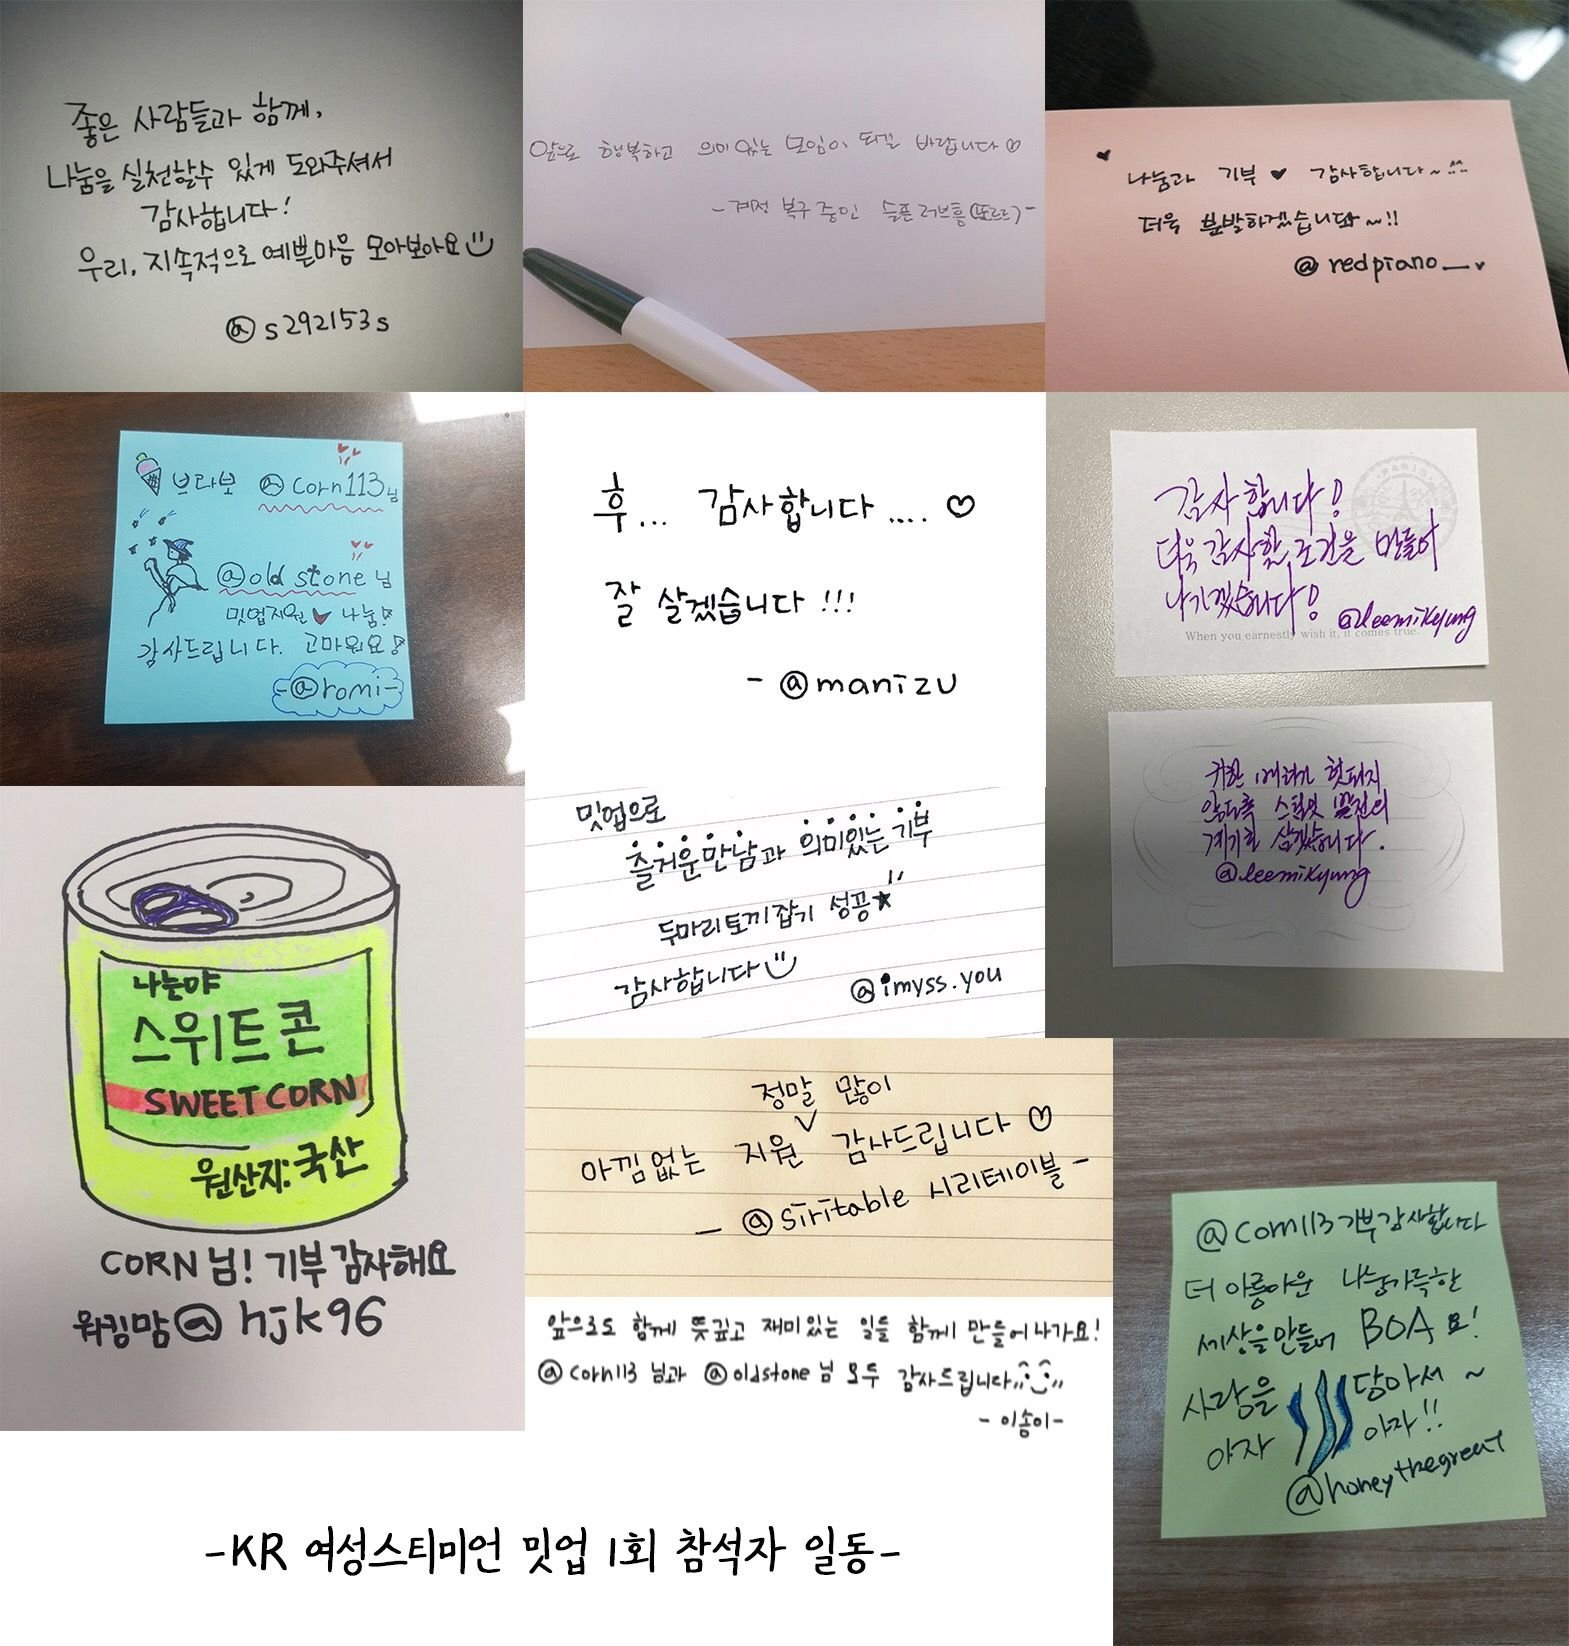 좋은 사람들과 함께,
나눔을 실천할수 있게 도와주셔서
감사합니다!
우리, 지속적으로 예쁜마음 모아보아요
@s292153s
앞으로 행복하고 의미있는 모임이 되길 바랍니다♡
-계정 복구 중인 슬픈 러브흥(또르르)-
♥
나눔과 기부 ♥ 감사합니다~!!
더욱 분발하겠습니다~!!
@redpiano_♥
브라보 @corn113님
@oldstone님
밋업지원 ♥ 나눔!
감사드립니다. 고마워요!
-@romi-
후... 감사합니다.....♡
잘 살겠습니다!!!
-@manizu
감사합니다!
더욱 감사할 조건을 만들어
나가겠습니다!
When you earnestly wish it, it comes true.
@leemikyung
귀한 헛되지
않도록 스팀잇 발전의
계기로 삼겠습니다.
@leemikyung
밋업으로
즐거운만남과 의미있는 기부
두마리토끼잡기 성공★!!
감사합니다
@imyss.you
나눔아
스위트콘
SWEET CORN
원산지:국산
CORN님! 기부 감사해요
워킹맘@hjk96
정말 많이
아낌없는 지원 감사드립니다♡
-@siritable 시리테이블-
앞으로도 함께 뜻깊고 재미있는 일들 함께 만들어나가요!
@corn113 님과 @oldstone 님 모두 감사드립니다
-이솜이-
@corn113 기부감사합니다
더 아름다운 나눔가득한
세상을만들어 BOA요!
사랑을 담아서~
아자 아자!!
@honeythegreat
-KR 여성스티미언 밋업 1회 참석자 일동-